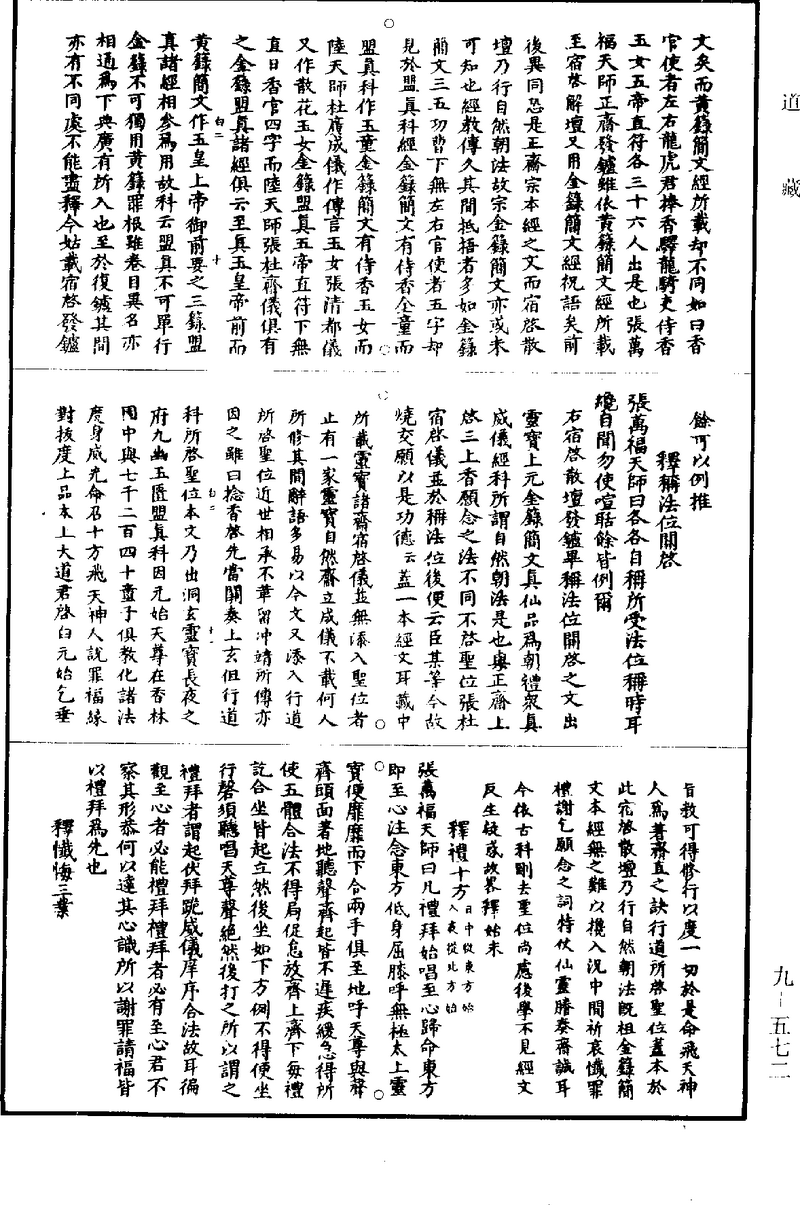 道藏
文矣而黃籙簡文經所載却不同如曰香
官使者左右龍虎君捧香驛龍騎吏侍香
玉女五帝直符各三十六人出是也張萬
福天師正齋發鑪雖依黃籙簡文經所載
至宿啓解壇又用金籙簡文經祝語矣前
後異同恐是正齋宗本經之文而宿啓散
壇乃行自然朝法故宗金籙簡文亦或未
可知也經教傳久其間抵捂者多如金籙
簡文三五功曹下無左右官使者五字却
見於盟真科經金籙簡文有侍香金童而
盟真科作玉童金籙簡文有侍香玉女而
陸天師杜廣成儀作傳言玉女張清都儀
又作散花玉女金籙盟真五帝直符下無
直日香官四字而陸天師張杜齋儀俱有
之金籙盟真諸經俱云至真玉皇帝前而
黃籙簡文作玉皇上帝御前要之三籙盟
真諸經相參為用故科云盟真不可單行
金籙不可獨用黃籙罪根雖卷目異名亦
相通為下典廣有所入也至於復鑪其間
亦有不同處不能盡釋今姑載宿啓發鑪
白二
十
餘可以例推
釋稱法位開啓
張萬福天師曰各各自稱所受法位稱時耳
纔自聞勿使喧聒餘皆例爾
右宿啓散壇發鑪畢稱法位開啓之文出
靈寶上元金籙簡文真仙品為朝禮衆真
威儀經科所謂自然朝法是也與正齋上
啓三上香願念之法不同不啓聖位張杜
宿啓儀並於稱法位後便云臣某等今故
燒香願以是功德云蓋一本經文耳藏中
所載靈寶諸齋宿啓儀並無添入聖位者
止有一家靈寶自然齋立成儀不載何人
所修其間辭語多易以今文又添入行道
所啓聖位近世相承不革留冲靖所傳亦
因之雖曰捻香啓先當關奏上玄但行道
科所啓聖位本文乃出洞玄靈寶長夜之
府九幽玉匱盟真科因元始天尊在香林
園中與七千二百四十童子俱教化諸法
度身威光命召十方飛天神人說罪福緣
對拔度上品太上大道君啓白元始乞垂
白二
十一
旨教可得修行以度一切於是命飛天神
人為普齋直之訣行道所啓聖位蓋本於
此宿啓散壇乃行自然朝法既祖金籙簡
文本經無之難以攙入況中間祈哀懺罪
禮謝乞願念之詞特伏仙靈謄奏齋誠耳
今依古科刪去聖位尚慮後學不見經文
反生疑惑故畧釋始末
釋禮十方日中從東方始
入夜從北方始
張萬福天師曰凡禮拜始唱至心歸命東方
即至心注念東方低身屈膝呼無極太上靈
寶便靡靡而下合兩手俱至地呼天尊與聲
齊頭面著地聽聲齊起皆不遲疾緩急得所
使五體合法不得局促怠放齊上齊下每禮
訖合坐皆起立然後坐如下方例不得便坐
行磬須聽唱天尊聲絶然後打之所以謂之
禮拜者謂起伏拜跪威儀庠序合法故耳徧
觀至心者必能禮拜禮拜者必有至心君不
察其形恭何以達其心識所以謝罪請福皆
以禮拜為先也
釋懺悔三業
九－五七二